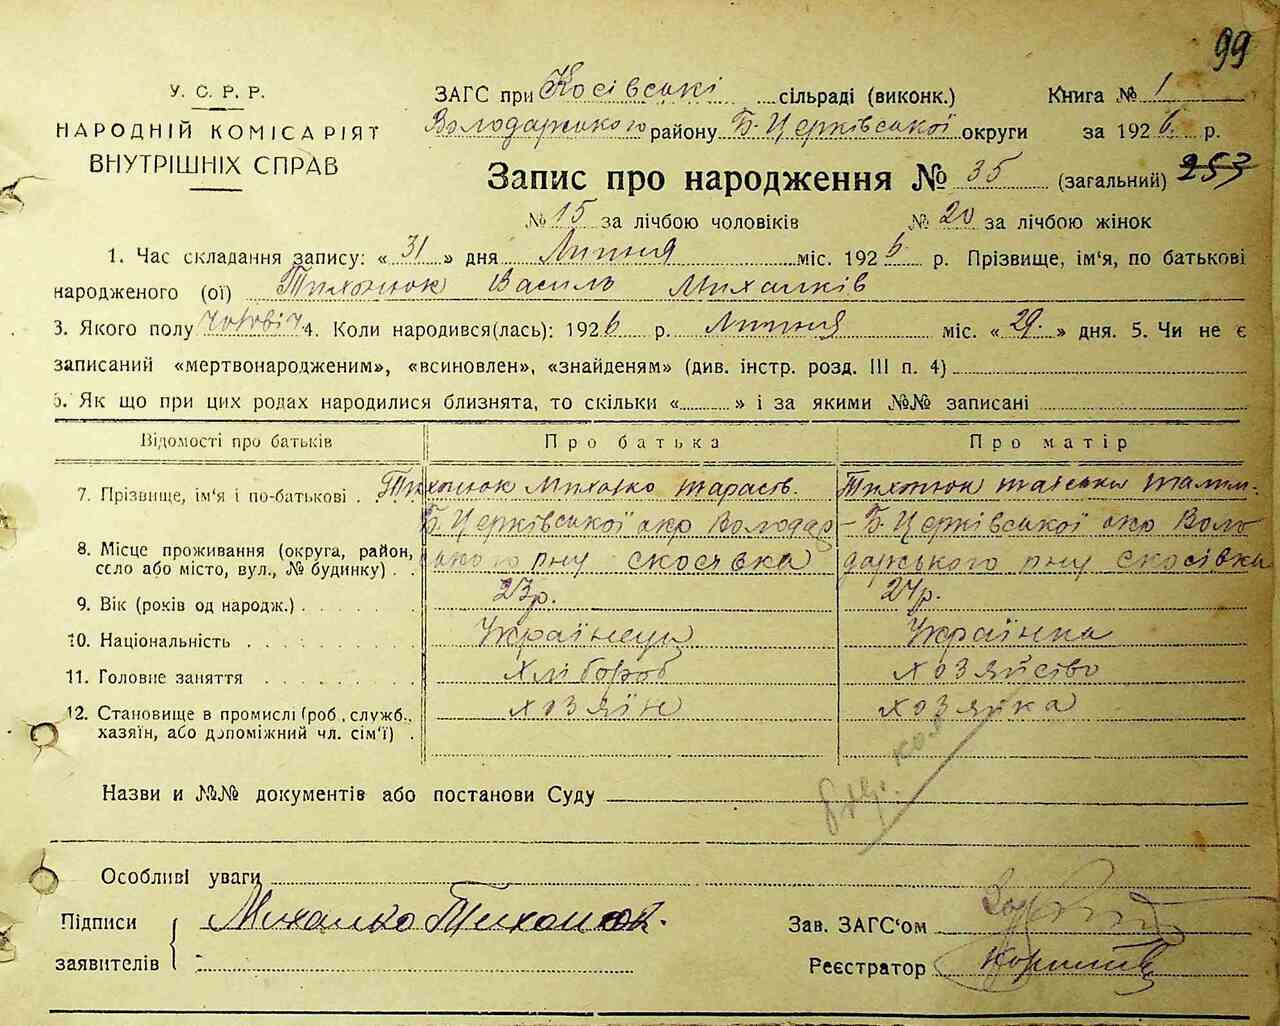 99
У. С. Р. Р.
НАРОДНІЙ КОМІСАРІЯТ
ВНУТРІШНІХ СПРАВ
ЗАГС при Косівські сільраді (виконк.) Книга № 1
Володарського району Б-Церківської округи за 1926 р.
Запис про народження № 35 (загальний) 253
№ 15 за лічбою чоловіків № 20 за лічбою жінок
1. Час складання запису: « 31 » дня Липня міс. 1926 р. Прізвище, ім'я, по батькові
народженого (ої) Тихонюк Василь Михалків
3. Якого полу чоловіч 4. Коли народився(лась): 1926 р. Липня міс. « 29. » дня. 5. Чи не є
записаний «мертвонародженим», «всиновлен», «знайденям» (див. інстр. розд. III п. 4)
6. Як що при цих родах народилися близнята, то скільки « » і за якими №№ записані
Відомості про батьків Про батька Про матір
7. Прізвище, ім'я і по-батькові Тихонюк Михалко Тарасів. Тихонюк
Б. Церківської окр Володар- Б. Церківської окр Воло
8. Місце проживання (округа, район, ського рну с Косівка дарського рну с Косівка
село або місто, вул., № будинку)
9. Вік (років од народж.) 23р. 24р.
10. Національність Українець Українка
11. Головне заняття хлібороб хозяйство
12. Становище в промислі (роб., служб., хозяїн хозяйка
хазяїн, або допоміжний чл. сім'ї)
Назви и №№ документів або постанови Суду
Особливі уваги
Підписи Михалко Тихонюк.
заявителів
Зав. ЗАГС'ом
Реєстратор